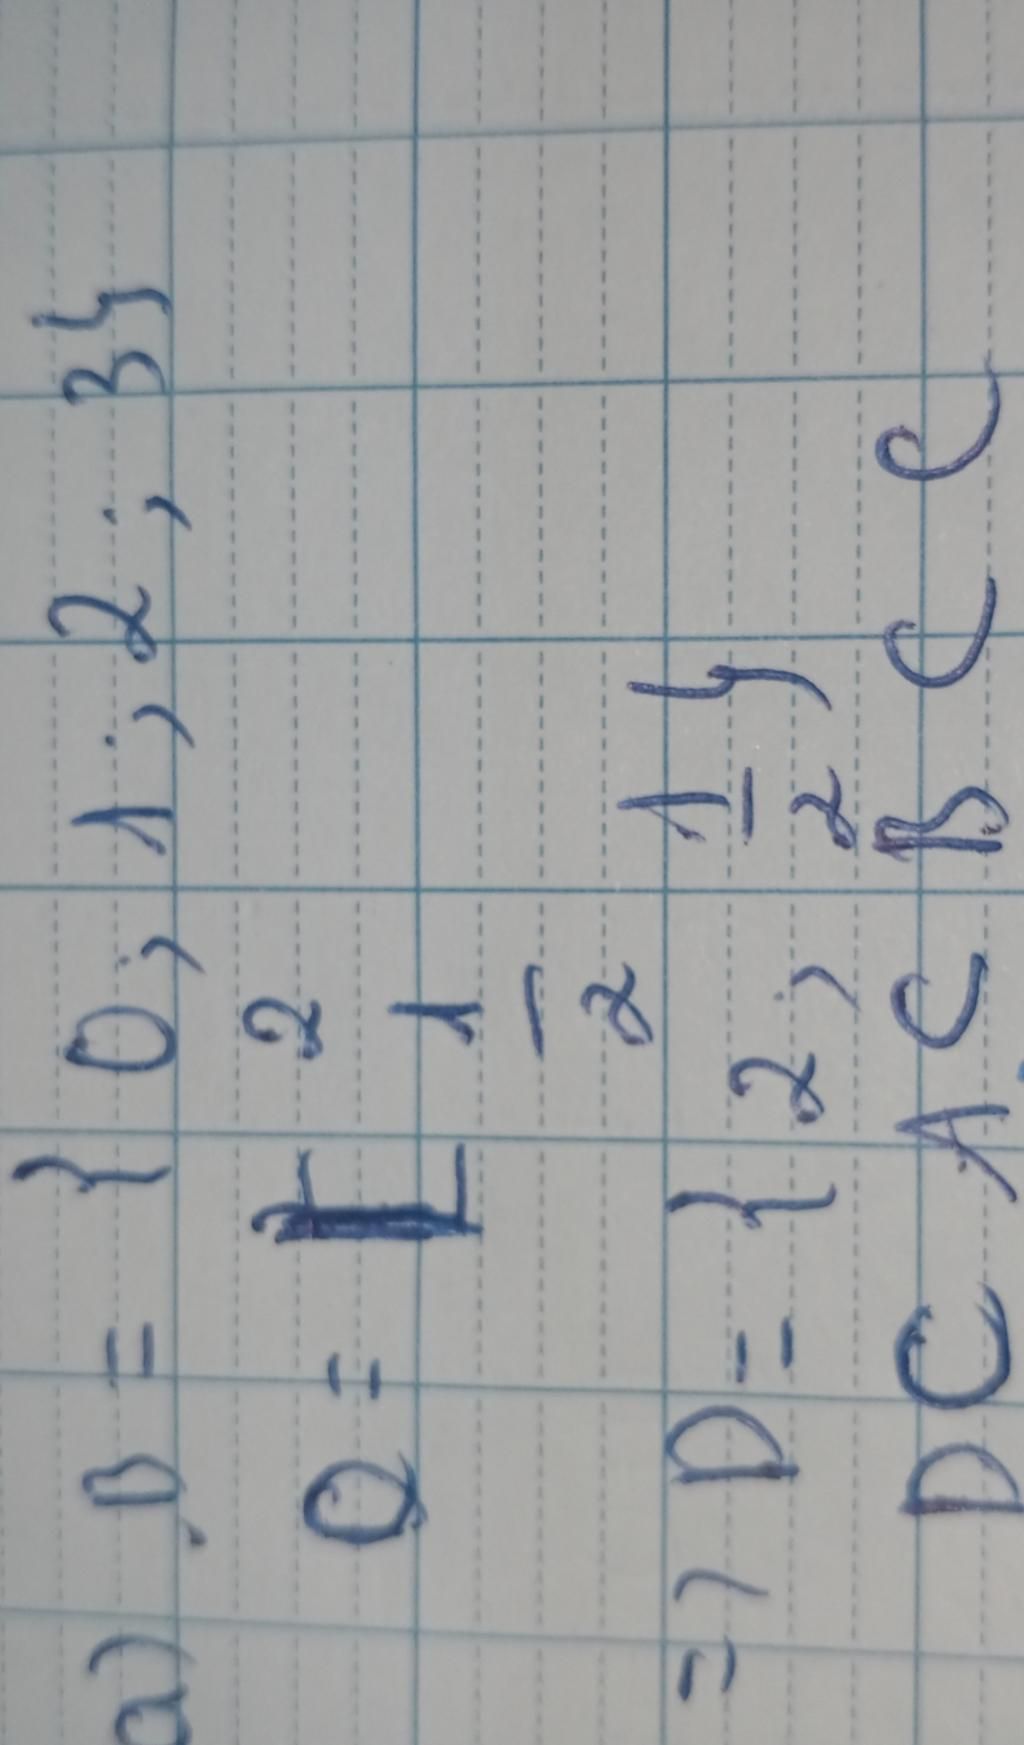 a) B = { 0; 1; 2; 3}
Q = [ 2
1/2
=> D = { 2; 1/2 }
D C A C B C C